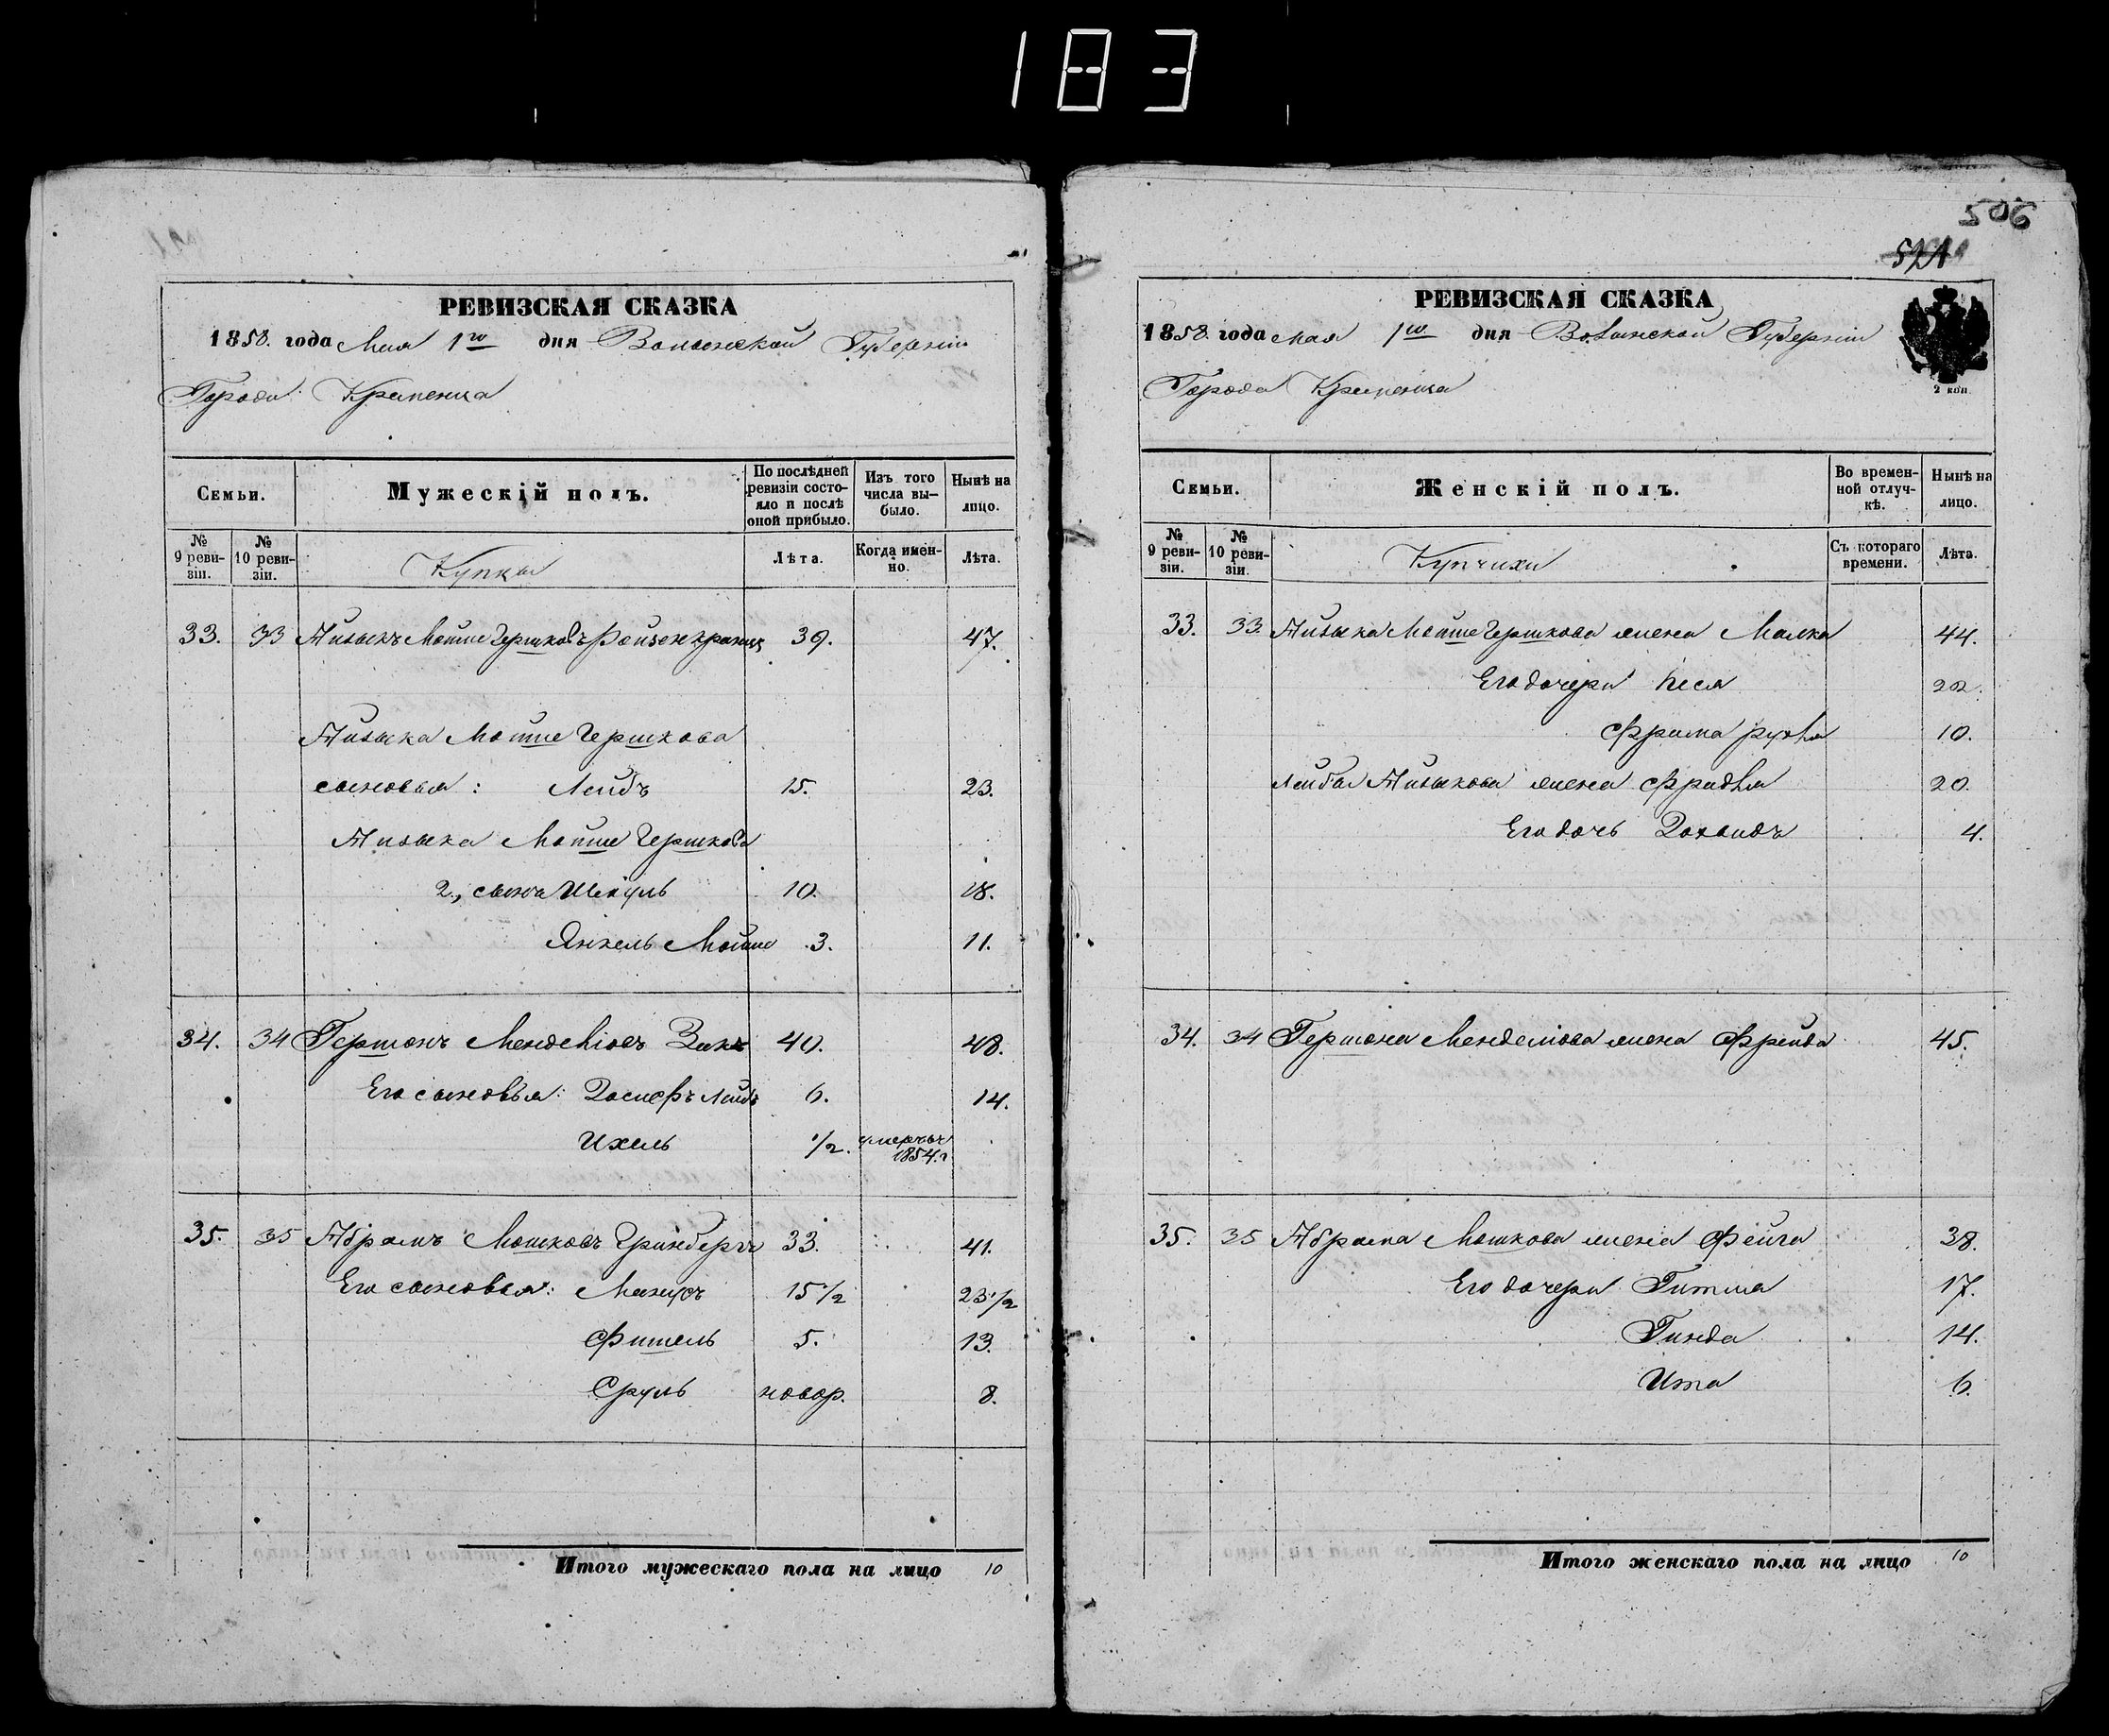 183
РЕВИЗСКАЯ СКАЗКА
1858. года Мая 1го дня Волынской Губерніи
Города Кременца
Семьи.
Мужескій полъ.
По послѣдней ревизіи состояло и послѣ оной прибыло.
Изъ того числа выбыло.
Нынѣ на лицо.
№ 9 ревизіи.
№ 10 ревизіи.
Купцы
Лѣта.
Когда именно.
Лѣта.
33. 33 Айзыкъ Мошко Гершковъ 39. 47.
Айзыка Гершкова
сыновья: Лейбъ 15. 23.
Айзыка Гершкова
2, сына Шмуль 10. 18.
Янкель Мошко 3. 11.
34. 34 Гершонъ Менделіовъ 40. 48.
Его сыновья: Іосифъ Лейбъ 6. 14.
Ихель 1/2. умеръ въ 1854.г
35. 35 Абрамъ Мошковъ Гринбергъ 33. 41.
Его сыновья: 15 1/2 23 1/2
Фишель 5. 13.
Сруль новор. 8.
Итого мужескаго пола на лицо 10
506
521
РЕВИЗСКАЯ СКАЗКА
1858. года мая 1го дня Волынской Губерніи
Города Кременца
2 коп.
Семьи.
Женскій полъ.
Во временной отлучкѣ.
Нынѣ на лицо.
№ 9 ревизіи.
№ 10 ревизіи.
Купчихи
Съ котораго времени.
Лѣта.
33. 33. Айзыка Гершкова жена Малка 44.
Его дочери Песя 22.
Фрима Рухля 10.
Лейбы Айзыкова жена Фрадля 20.
Его дочь 4.
34. 34 Гершона Менделіова жена Фрейда 45.
35. 35 Абрама Мошкова жена Фейга 38.
Его дочери Гитля 17.
Гинда 14.
Ита 6.
Итого женскаго пола на лицо 10